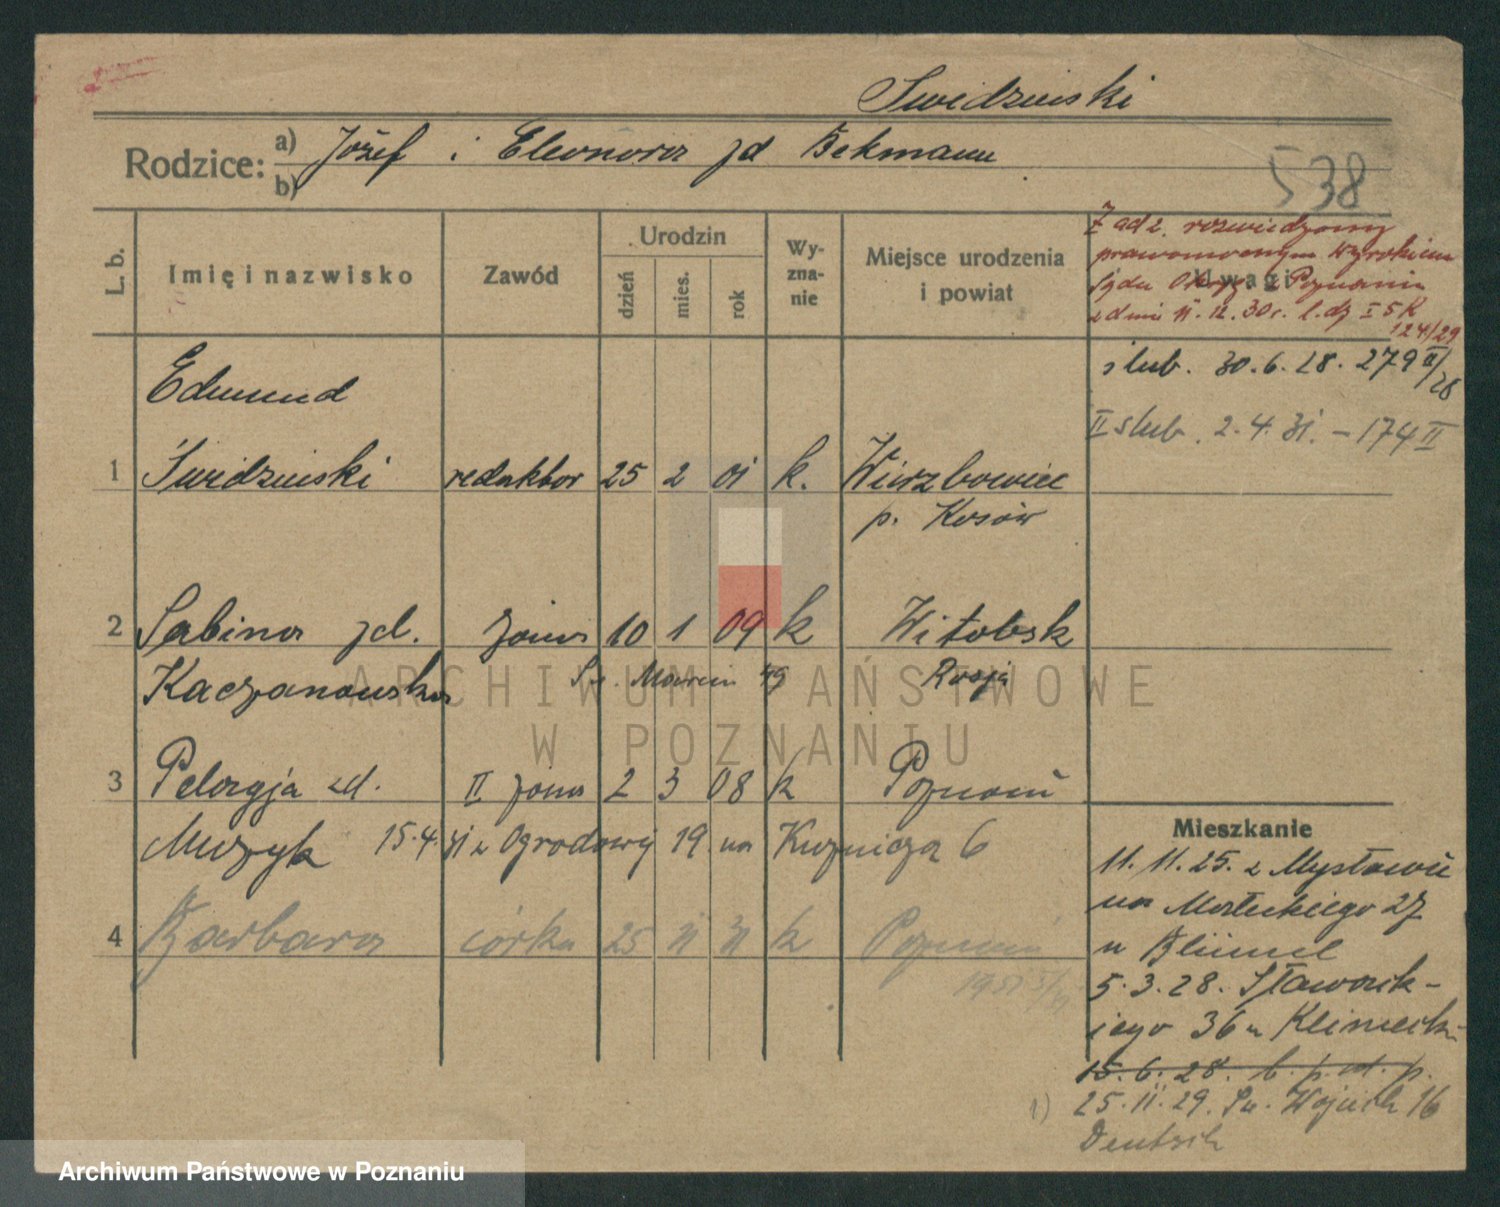 Swidzinski
Rodzice: a) Józef i Eleonora zd Bekmann
b)
538
L. b.
Imię i nazwisko
Zawód
Urodzin
dzień
mies.
rok
Wy-
zna-
nie
Miejsce urodzenia
i powiat
Uwagi
Z ad 2. rozwiedziony
prawomocnym wyrokiem
Sądu Okręg. w Poznaniu
z dnia 11.12.30 r. l.dz I 5 K
124/29
ślub. 30.6.28. 279 II/28
II ślub. 2.4.31. – 174 II
Edmund
1 Świdzinski redaktor 25 2 01 k. Wierzbowiec
p. Kosów
2 Sabina zd. żona 10 1 09 k Witebsk
Kaczanowska Św. Marcin 49 Rosja
3 Pelagja zd. II żona 2 3 08 k Poznań
Muzyk 15.4.31 z Ogrodowej 19 na Kuźnicza 6
4 Barbara córka 25 11 31 k Poznań
Mieszkanie
11.11.25. z Mysłowic
na Małeckiego 27
u Blümel
5.3.28. Sławork-
iego 36 u Klimecki
15.6.28. b. p. w. p.
1) 25.11.29. Św. Wojciech 16
Deutsch
ARCHIWUM PAŃSTWOWE
W POZNANIU
Archiwum Państwowe w Poznaniu